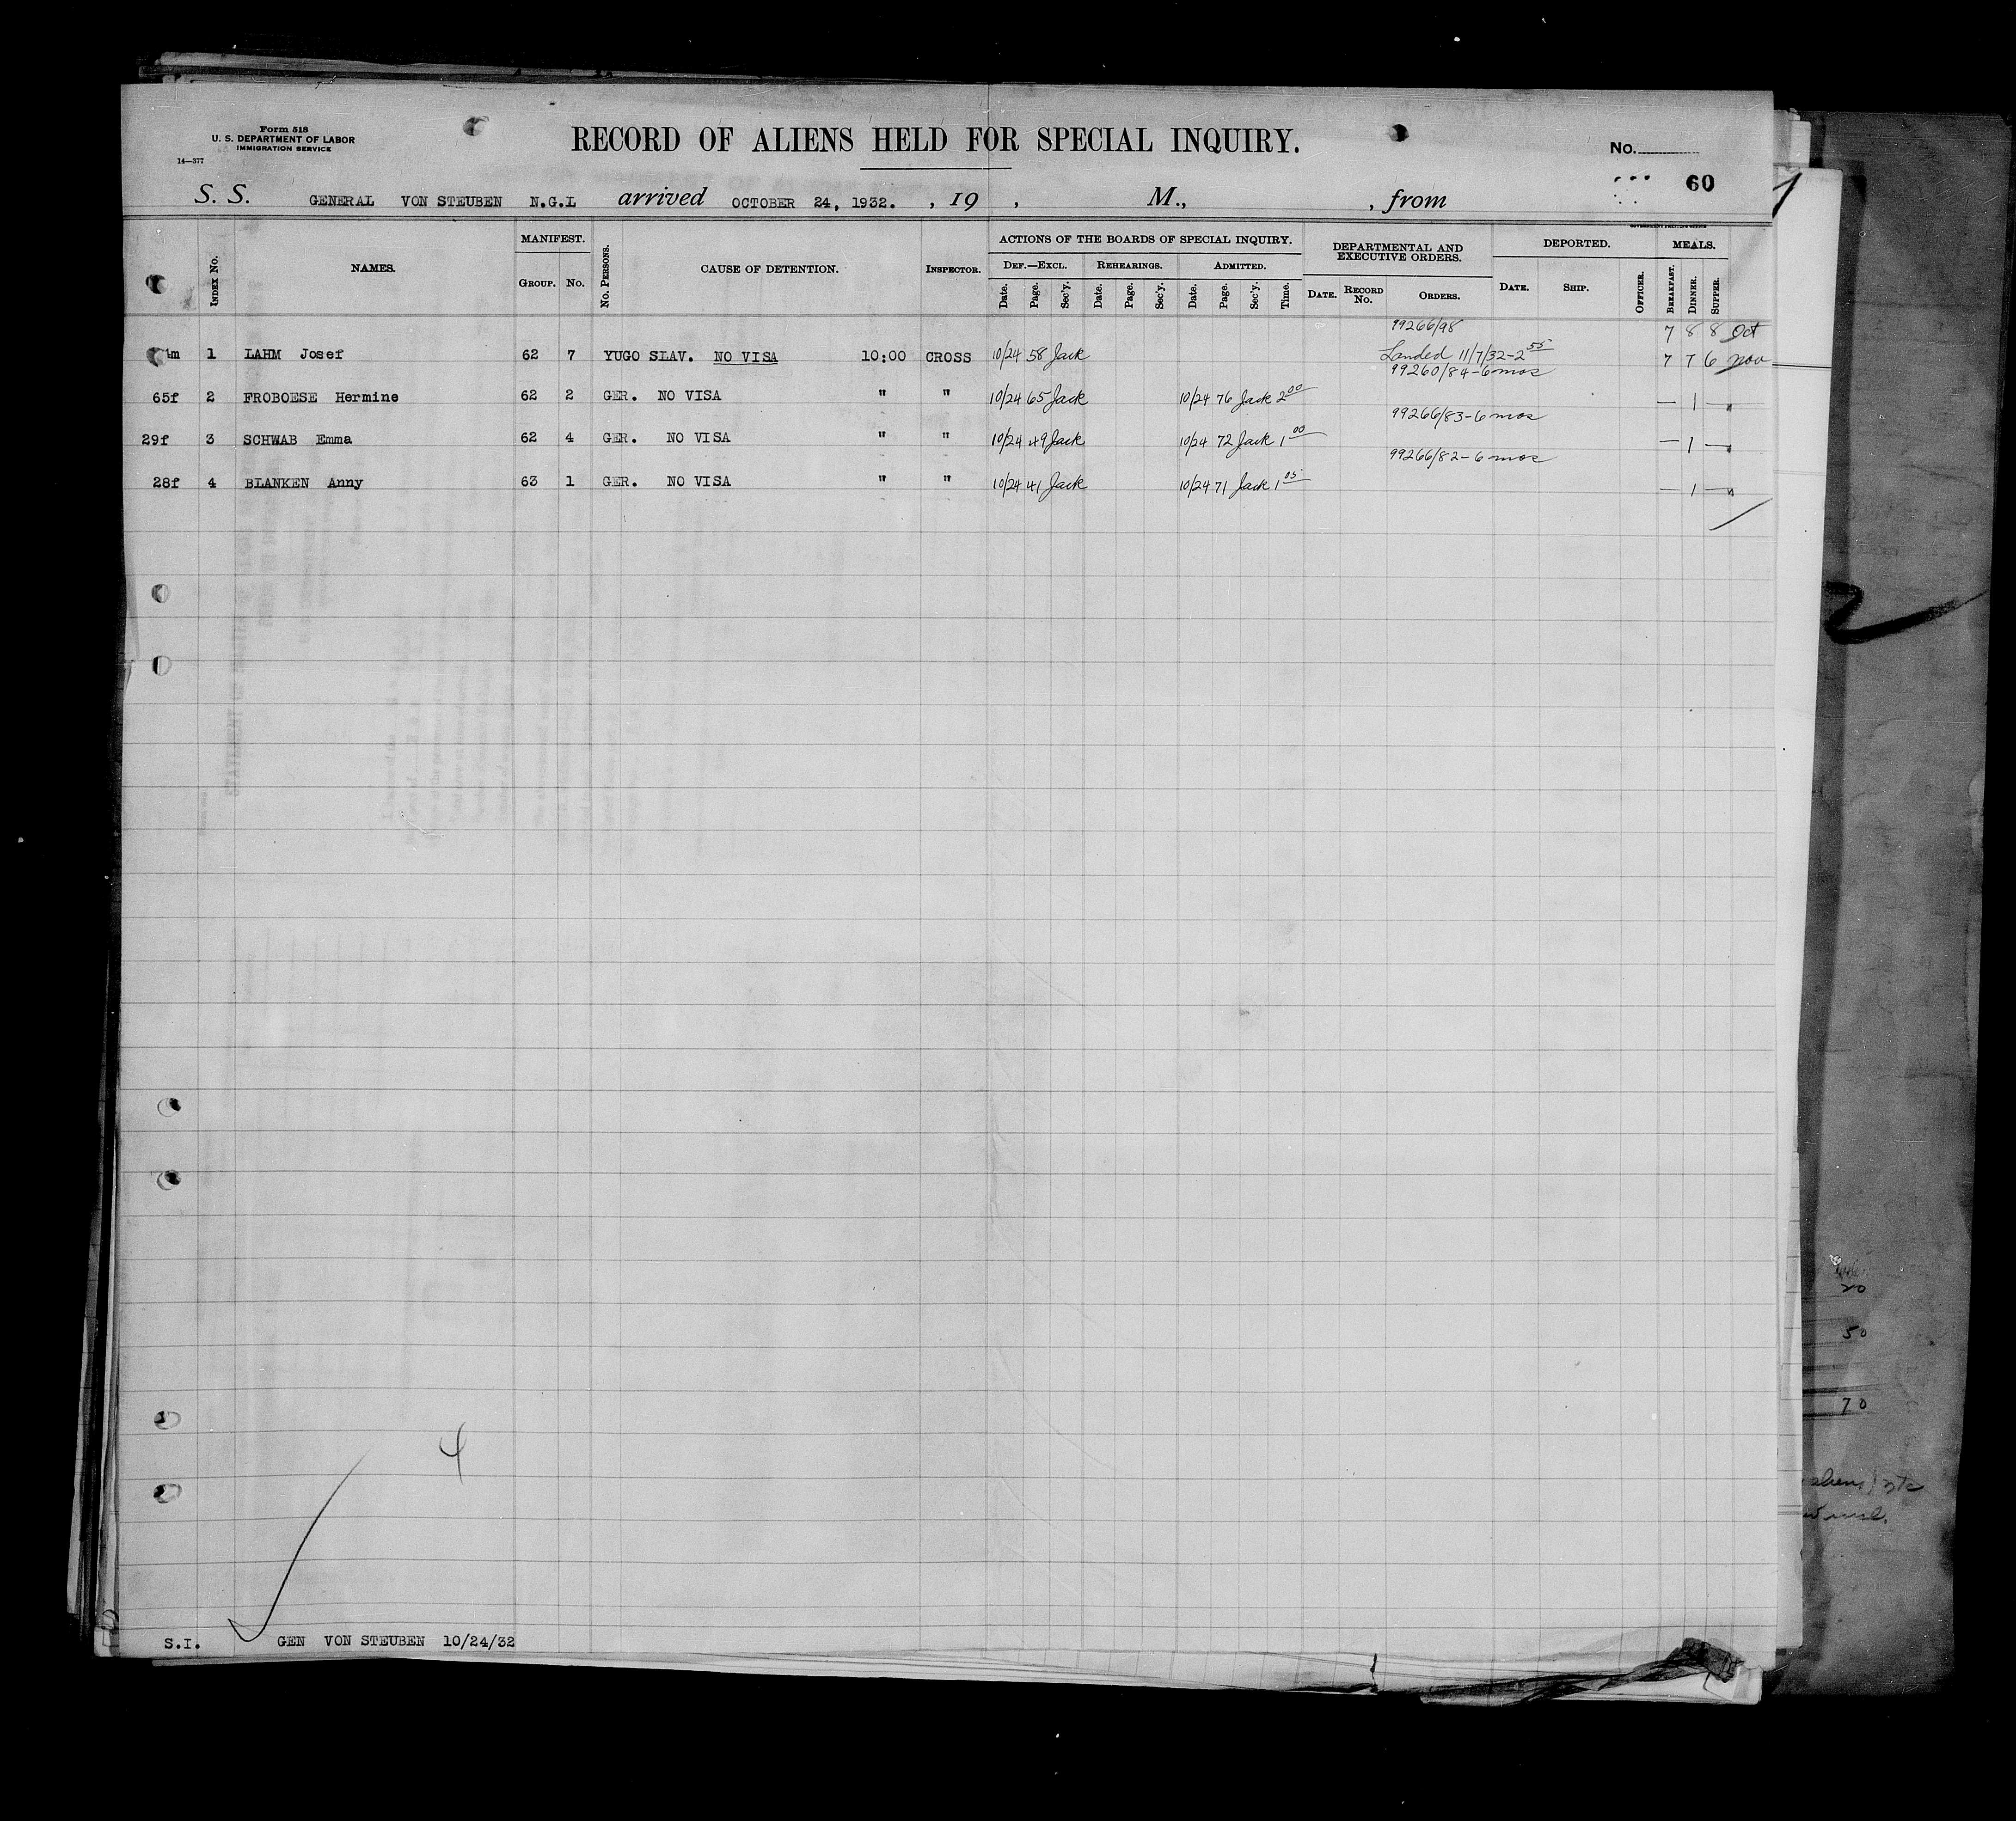 Form 518
U. S. DEPARTMENT OF LABOR
IMMIGRATION SERVICE
14—377
RECORD OF ALIENS HELD FOR SPECIAL INQUIRY.
No.
60
S. S. GENERAL VON STEUBEN N.G.L arrived OCTOBER 24, 1932. , 19 , M., , from
INDEX No. NAMES. MANIFEST. GROUP. No. No. PERSONS. CAUSE OF DETENTION. INSPECTOR. ACTIONS OF THE BOARDS OF SPECIAL INQUIRY. DEF.—EXCL. Date. Page. Sec'y. REHEARINGS. Date. Page. Sec'y. ADMITTED. Date. Page. Sec'y. Time. DEPARTMENTAL AND EXECUTIVE ORDERS. DATE. RECORD No. ORDERS. DEPORTED. DATE. SHIP. OFFICER. MEALS. BREAKFAST. DINNER. SUPPER.
99266/98 7 8 8 Oct
m 1 LAHM Josef 62 7 YUGO SLAV. NO VISA 10:00 CROSS 10/24 58 Jack Landed 11/7/32-2 55 7 7 6 Nov
99260/84-6 mos
65f 2 FROBOESE Hermine 62 2 GER. NO VISA " " 10/24 65 Jack 10/24 76 Jack 2 00 — 1 — "
99266/83-6 mos
29f 3 SCHWAB Emma 62 4 GER. NO VISA " " 10/24 49 Jack 10/24 72 Jack 1 00 — 1 — "
99266/82-6 mos
28f 4 BLANKEN Anny 63 1 GER. NO VISA " " 10/24 41 Jack 10/24 71 Jack 1 05 — 1 — "
20
50
70
4
S.I. GEN VON STEUBEN 10/24/32